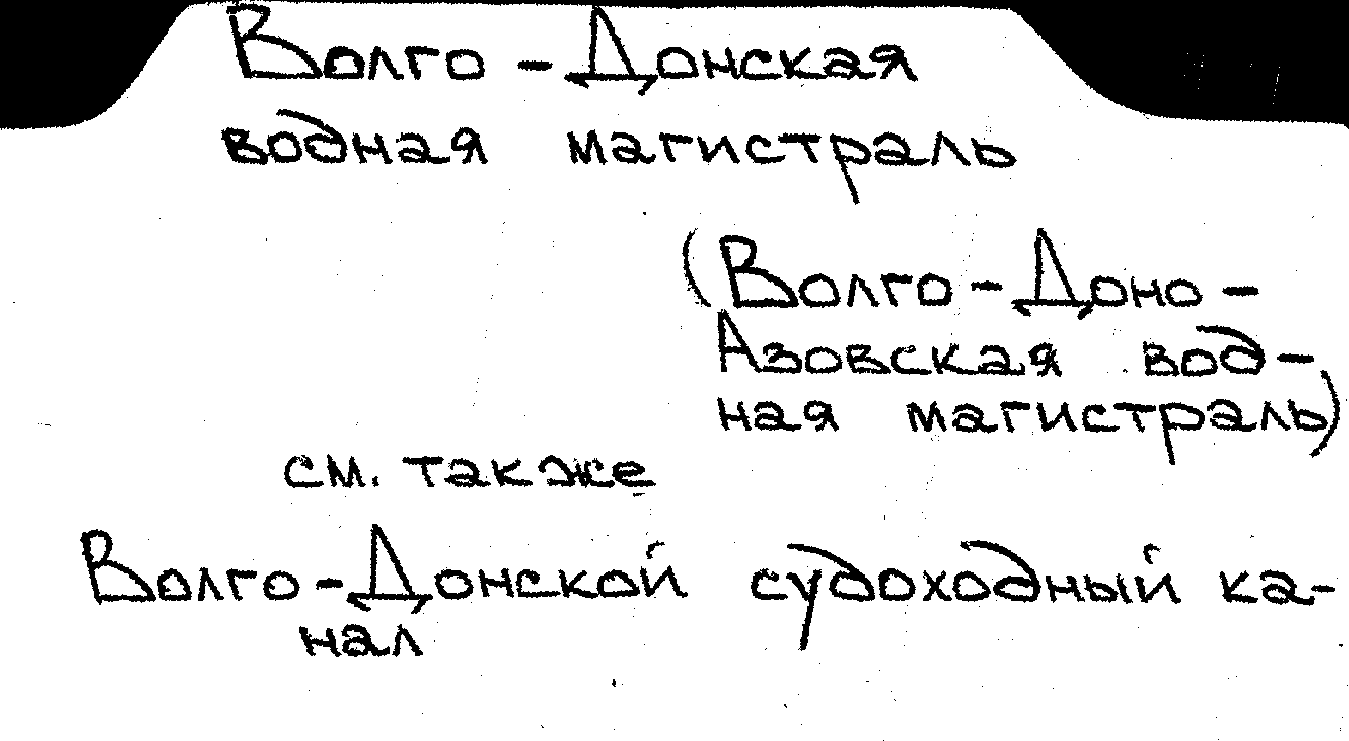 Волго-Донская
водная магистраль
(Волго-Доно-
Азовская вод-
ная магистраль)
см. также
Волго-Донской судоходный ка-
нал